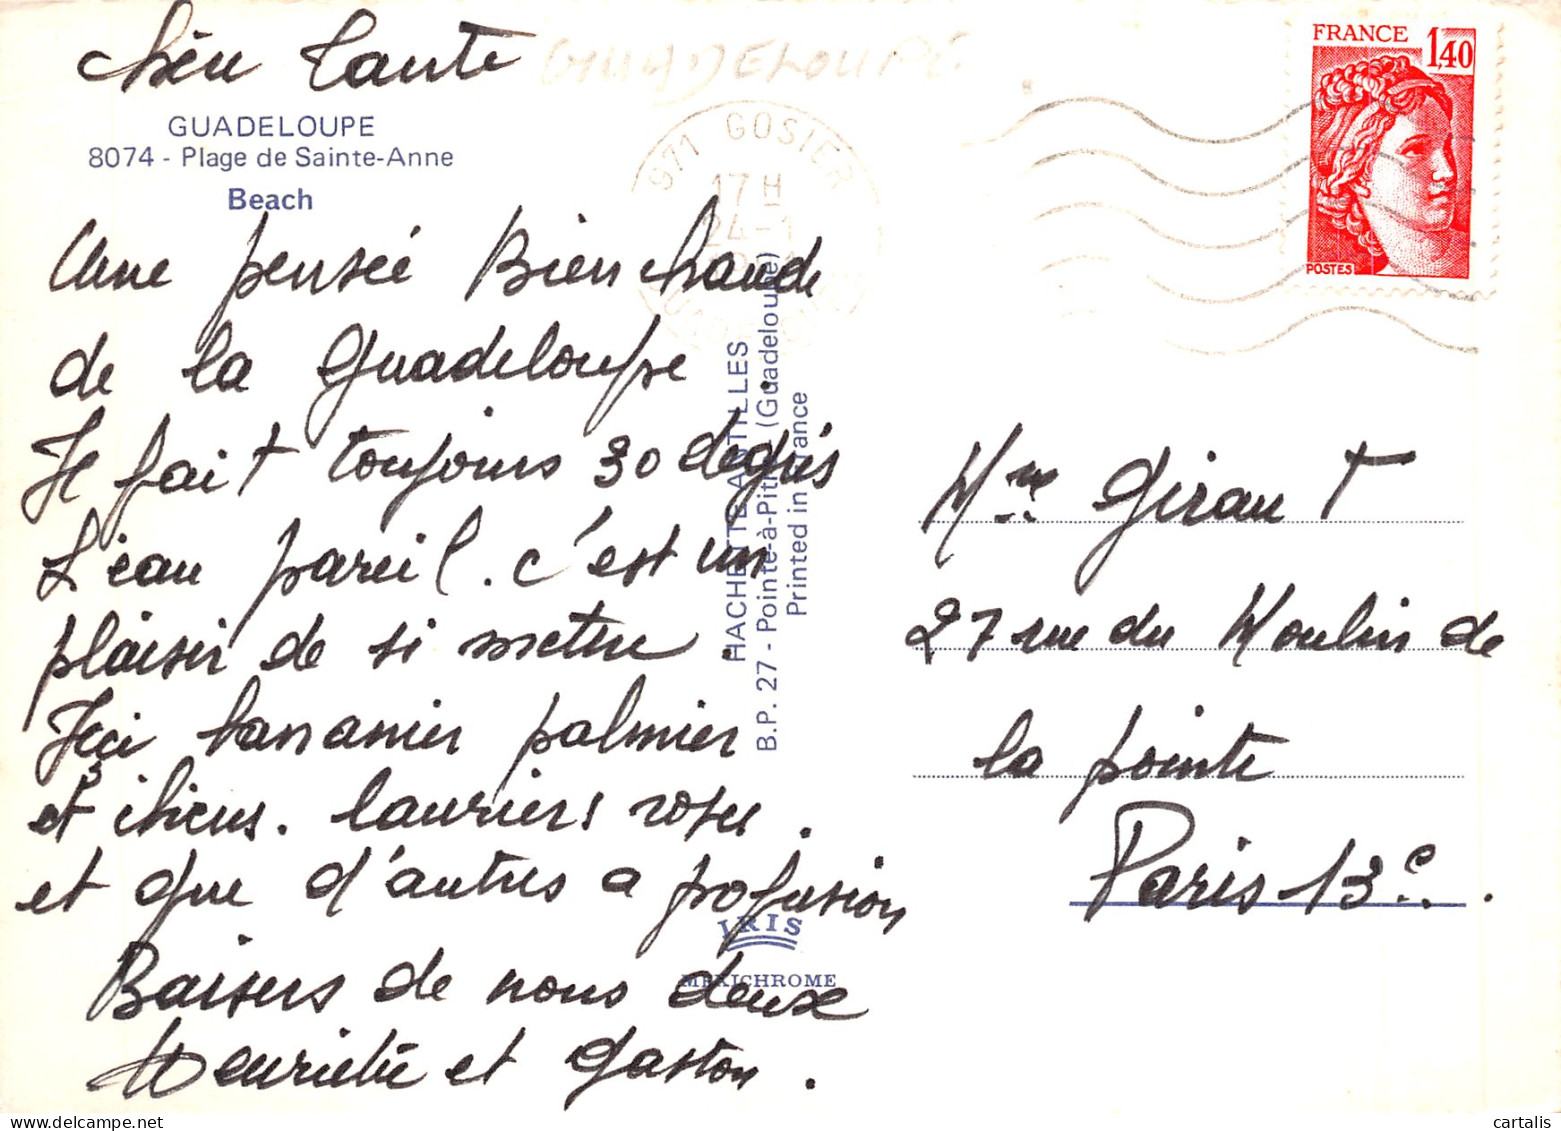 Chère Tante
GUADELOUPE
GUADELOUPE
8074 - Plage de Sainte-Anne
Beach
Une pensée Bien chaude
de la Guadeloupe.
Il fait toujours 30 degrés
L'eau pareil. c'est un
plaisir de si mettre.
Ici bananier palmier
et ibicus. lauriers roses.
et que d'autres a profusion
Baisers de nous deux
Henriette et Gaston.
971 GOSIER
17 H
24-1
FRANCE
1,40
POSTES
HACHETTE ANTILLES
B.P. 27 - Pointe-à-Pitre (Guadeloupe)
Printed in France
IRIS
MEXICHROME
Mme Giraut
27 rue du Moulin de
la pointe
Paris 13e.
cartalis